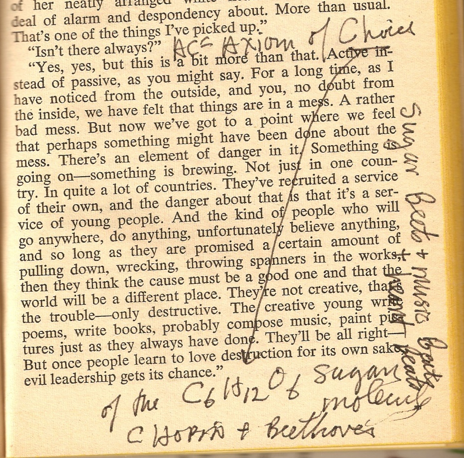 of her neatly arranged white
deal of alarm and despondency about. More than usual.
That's one of the things I've picked up."
"Isn't there always?" AC= Axiom of Choice
"Yes, yes, but this is a bit more than that. Active in-
stead of passive, as you might say. For a long time, as I
have noticed from the outside, and you, no doubt from
the inside, we have felt that things are in a mess. A rather
bad mess. But now we've got to a point where we feel
that perhaps something might have been done about the
mess. There's an element of danger in it. Something is
going on—something is brewing. Not just in one coun-
try. In quite a lot of countries. They've recruited a service
of their own, and the danger about that is that it's a ser-
vice of young people. And the kind of people who will
go anywhere, do anything, unfortunately believe anything,
and so long as they are promised a certain amount of
pulling down, wrecking, throwing spanners in the works,
then they think the cause must be a good one and that the
world will be a different place. They're not creative, that's
the trouble—only destructive. The creative young write
poems, write books, probably compose music, paint pic-
tures just as they always have done. They'll be all right—
But once people learn to love destruction for its own sake
evil leadership gets its chance."
Sugar Beets + music beats
of the C6H12O6 sugar
molecule
CHOPIN + Beethoven